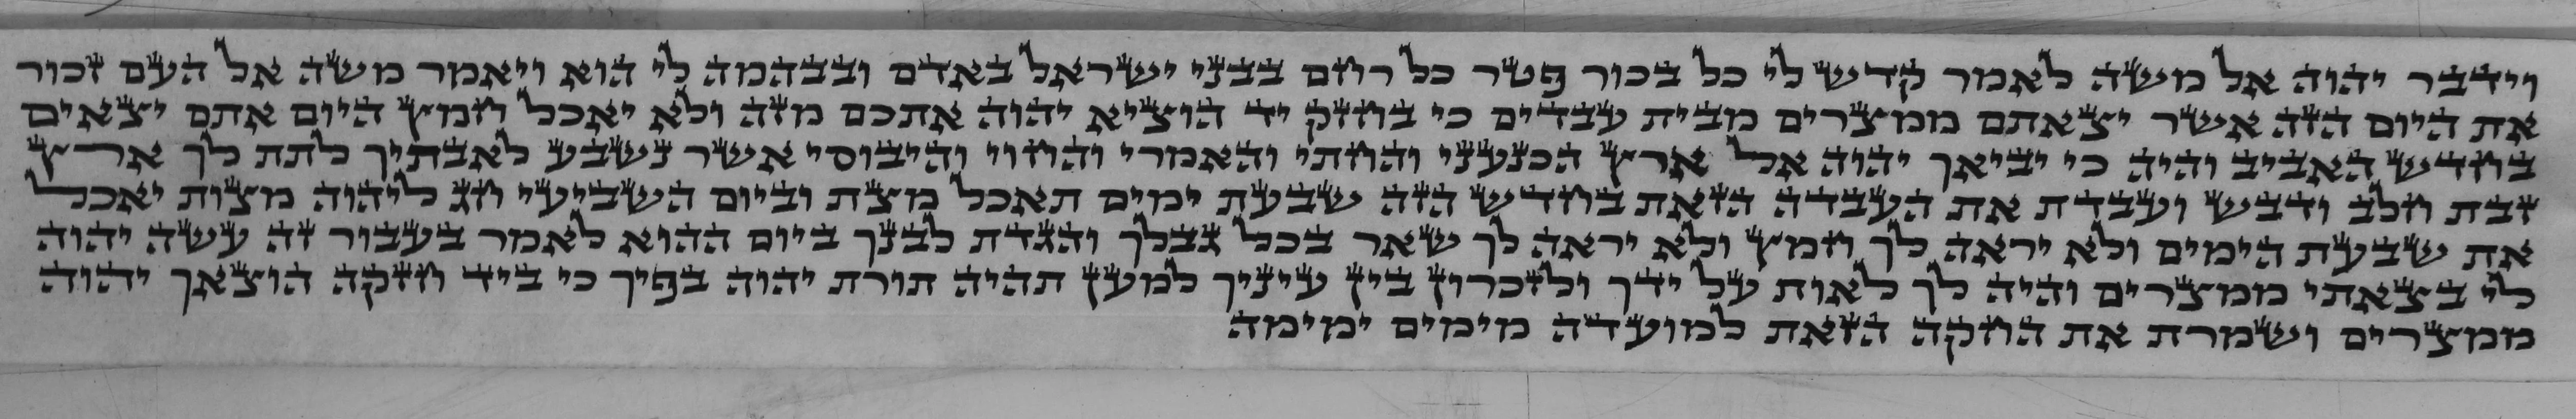 וידבר יהוה אל משה לאמר קדש לי כל בכור פטר כל רחם בבני ישראל באדם ובבהמה לי הוא ויאמר משה אל העם זכור
את היום הזה אשר יצאתם ממצרים מבית עבדים כי בחזק יד הוציא יהוה אתכם מזה ולא יאכל חמץ היום אתם יצאים
בחדש האביב והיה כי יביאך יהוה אל ארץ הכנעני והחתי והאמרי והחוי והיבוסי אשר נשבע לאבתיך לתת לך ארץ
זבת חלב ודבש ועבדת את העבדה הזאת בחדש הזה שבעת ימים תאכל מצת וביום השביעי חג ליהוה מצות יאכל
את שבעת הימים ולא יראה לך חמץ ולא יראה לך שאר בכל גבלך והגדת לבנך ביום ההוא לאמר בעבור זה עשה יהוה
לי בצאתי ממצרים והיה לך לאות על ידך ולזכרון בין עיניך למען תהיה תורת יהוה בפיך כי ביד חזקה הוצאך יהוה
ממצרים ושמרת את החקה הזאת למועדה מימים ימימה